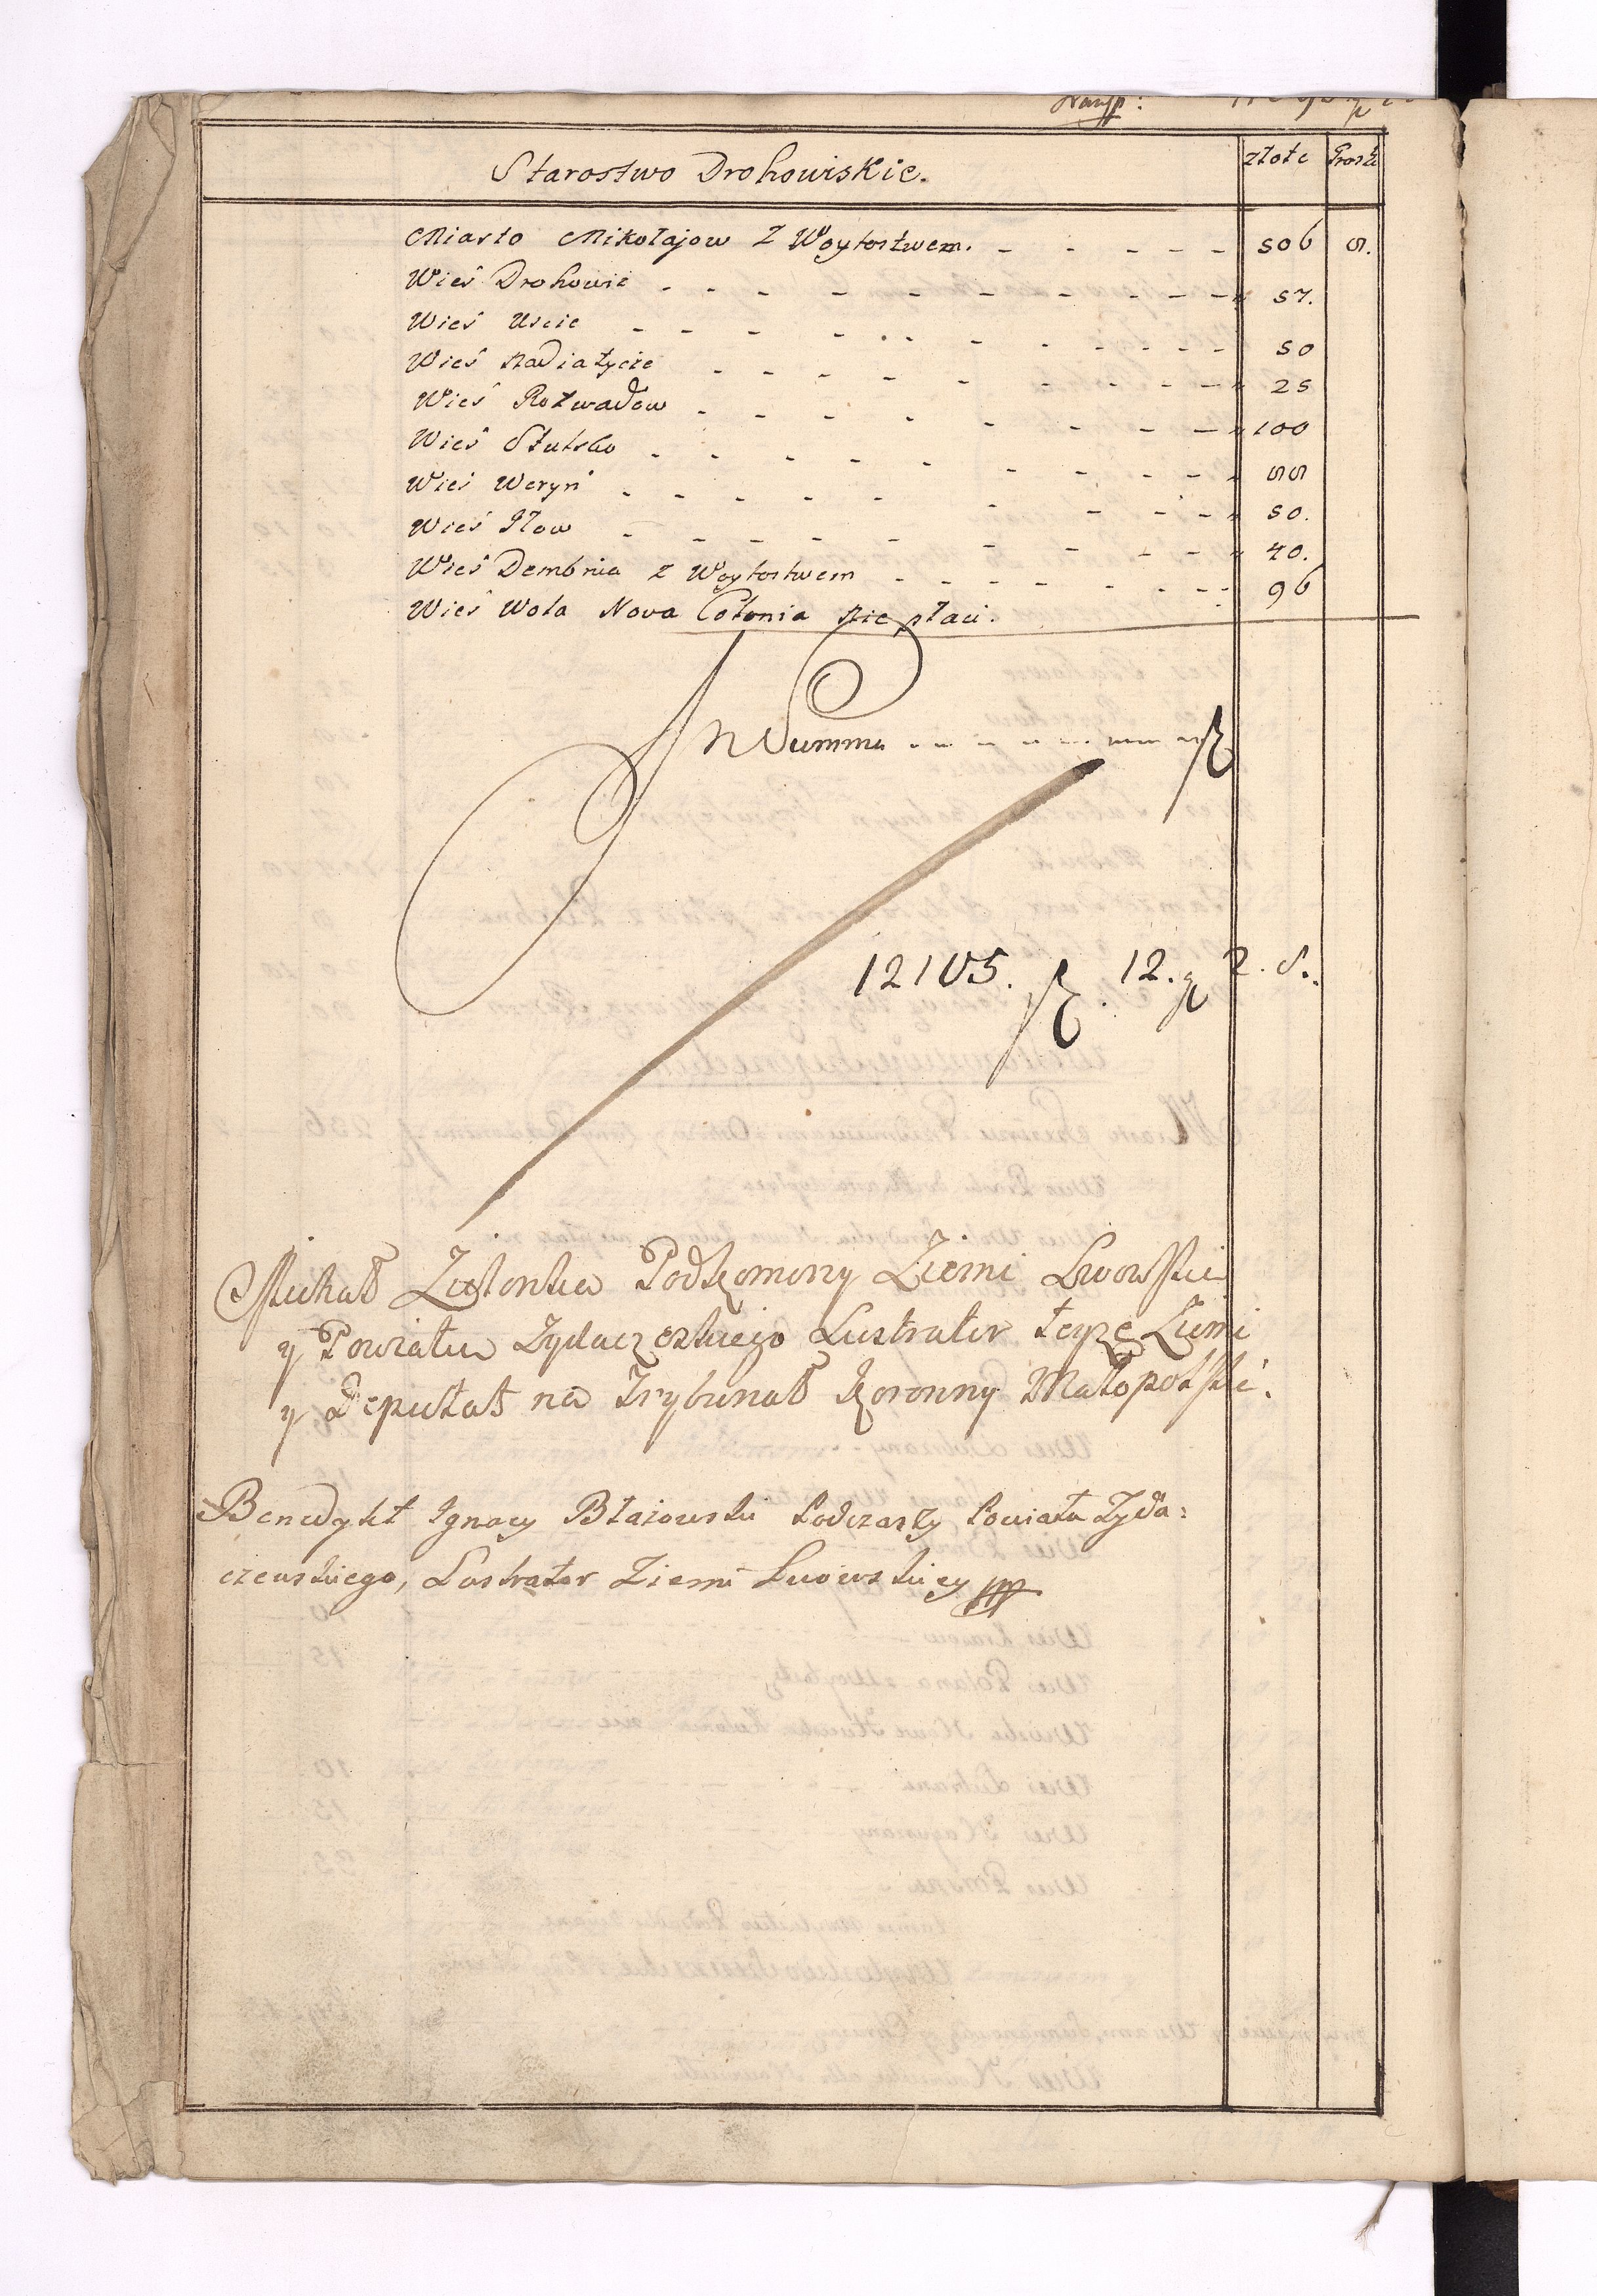 Starostwo Drohowiskie. złote Grosze
Miasto Mikołajow z Woytostwem. 506 5.
Wieś Drohowie 57.
Wieś Uscie 50
Wieś Nadiatycze 25
Wieś Rozwadow 100
Wieś Stulsko 55
Wieś Weryń 50.
Wieś Iłow 40.
Wieś Dembnia z Woytostwem 96
Wieś Wola Nova Colonia nie płaci.
In Summa
12105. 12. 2.
Michał Podkomorzy Ziemi Lwowskiei
y Powiatu Zydaczeskiego Lustrator teyże Ziemi
y Deputat na Trybunał Koronny Małopolski.
Benedykt Ignacy Błażowski Podczaszy Powiatu Zyda:
czewskiego, Lustrator Ziemi Lwowskiey